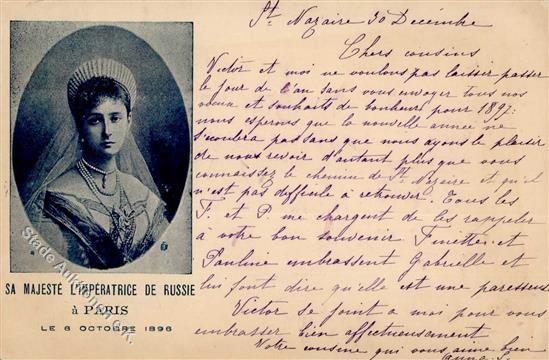 St. Nazaire 30 Décembre
Chers cousins
Victor et moi ne voulons pas laisser passer
le jour de l'an sans vous envoyer tous nos
vœux et souhaits de bonheur pour 1897:
nous esperons que la nouvelle année ne
s'écoulera pas sans que nous ayons le plaisir
de nous revoir d'autant plus que vous
connaissez le chemin de St. Nazaire et qu'il
n'est pas difficile à retrouver. Tous les
F. et P. me chargent de les rappeler
à votre bon souvenir Finette et
Pauline embrassent Gabrielle et
lui font dire qu'elle est une paresseuse
Victor se joint à moi pour vous
embrasser bien affectueusement
Votre cousine qui vous aime bien
Anna
SA MAJESTÉ L'IMPÉRATRICE DE RUSSIE
à PARIS
LE 6 OCTOBRE 1896